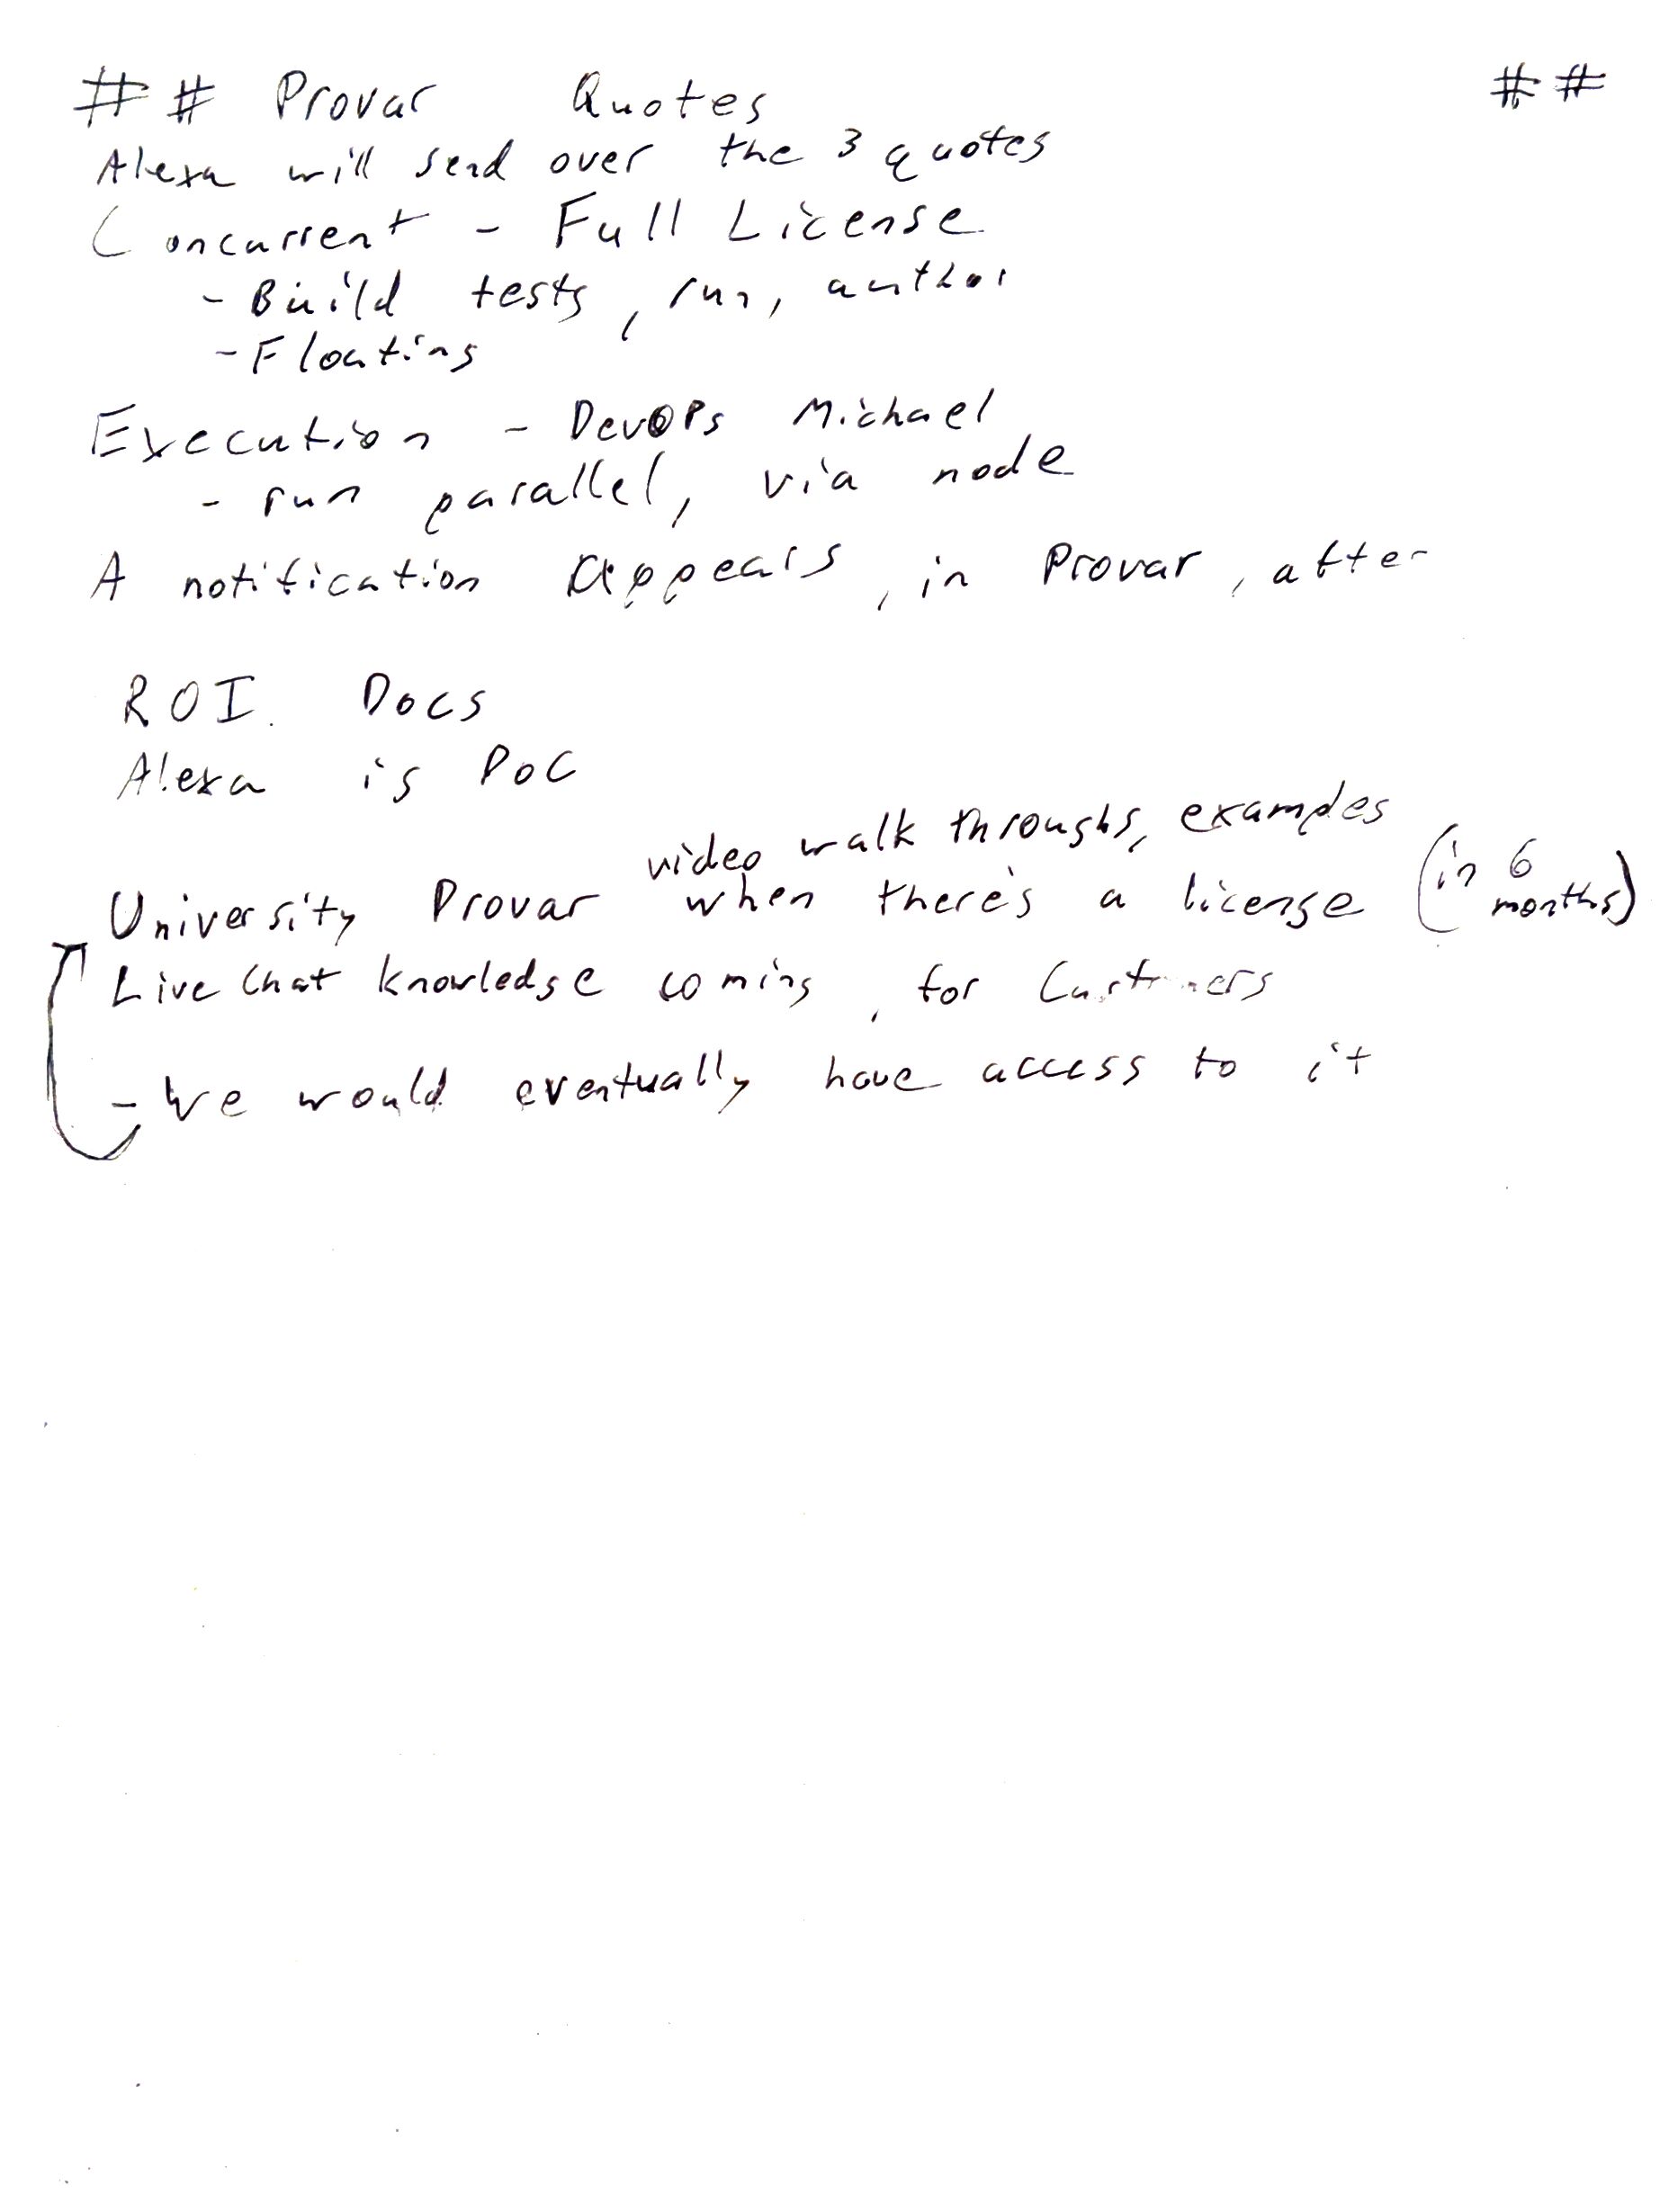 ## Provar Quotes ##
Alexa will send over the 3 quotes
Concurrent - Full License
- Build tests, run, author
- Floating
Execution - DevOPs Michael
- run parallel, via node
A notification appears, in Provar, after
ROI Docs
Alexa is PoC
video walk throughs, examples
University Provar when there's a license (in 6 months)
Live Chat knowledge coming, for Customers
- We would eventually have access to it